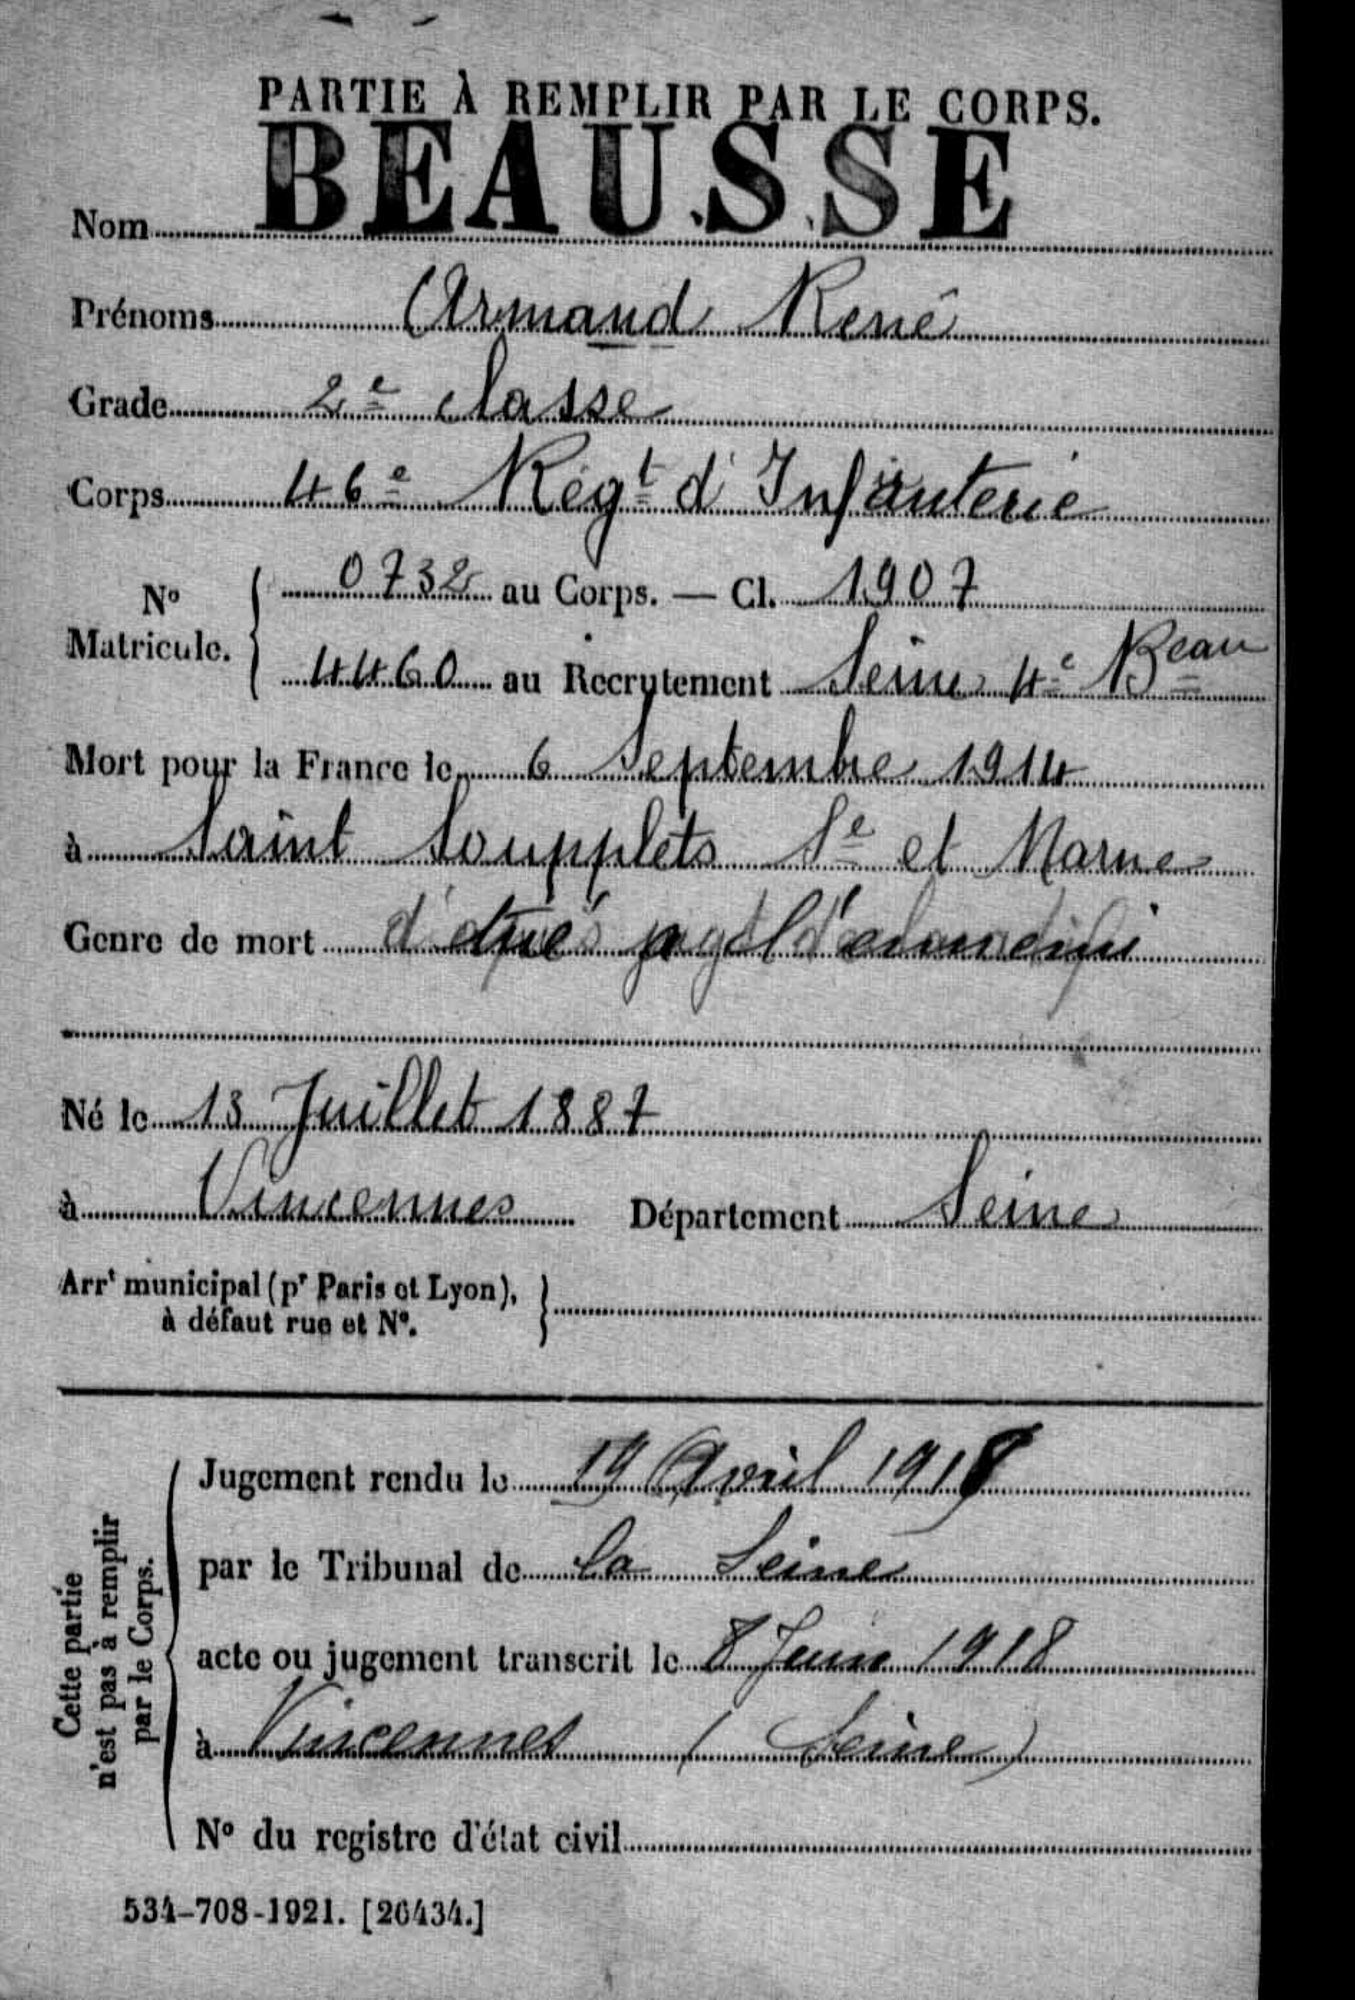 PARTIE À REMPLIR PAR LE CORPS.
Nom BEAUSSE
Prénoms Armand René
Grade 2e classe
Corps 46e Régt d'Infanterie
No Matricule. { 0732 au Corps. — Cl. 1907
4460 au Recrutement Seine 4e Beau
Mort pour la France le 6 Septembre 1914
à Saint Soupplets Se et Marne
Genre de mort tué à l'ennemi
Né le 13 Juillet 1887
à Vincennes Département Seine
Arrt municipal (pr Paris et Lyon),
à défaut rue et No.
Cette partie
n'est pas à remplir
par le Corps.
Jugement rendu le 19 Avril 1918
par le Tribunal de la Seine
acte ou jugement transcrit le 8 Juin 1918
à Vincennes (Seine)
No du registre d'état civil
534-708-1921. [26434.]